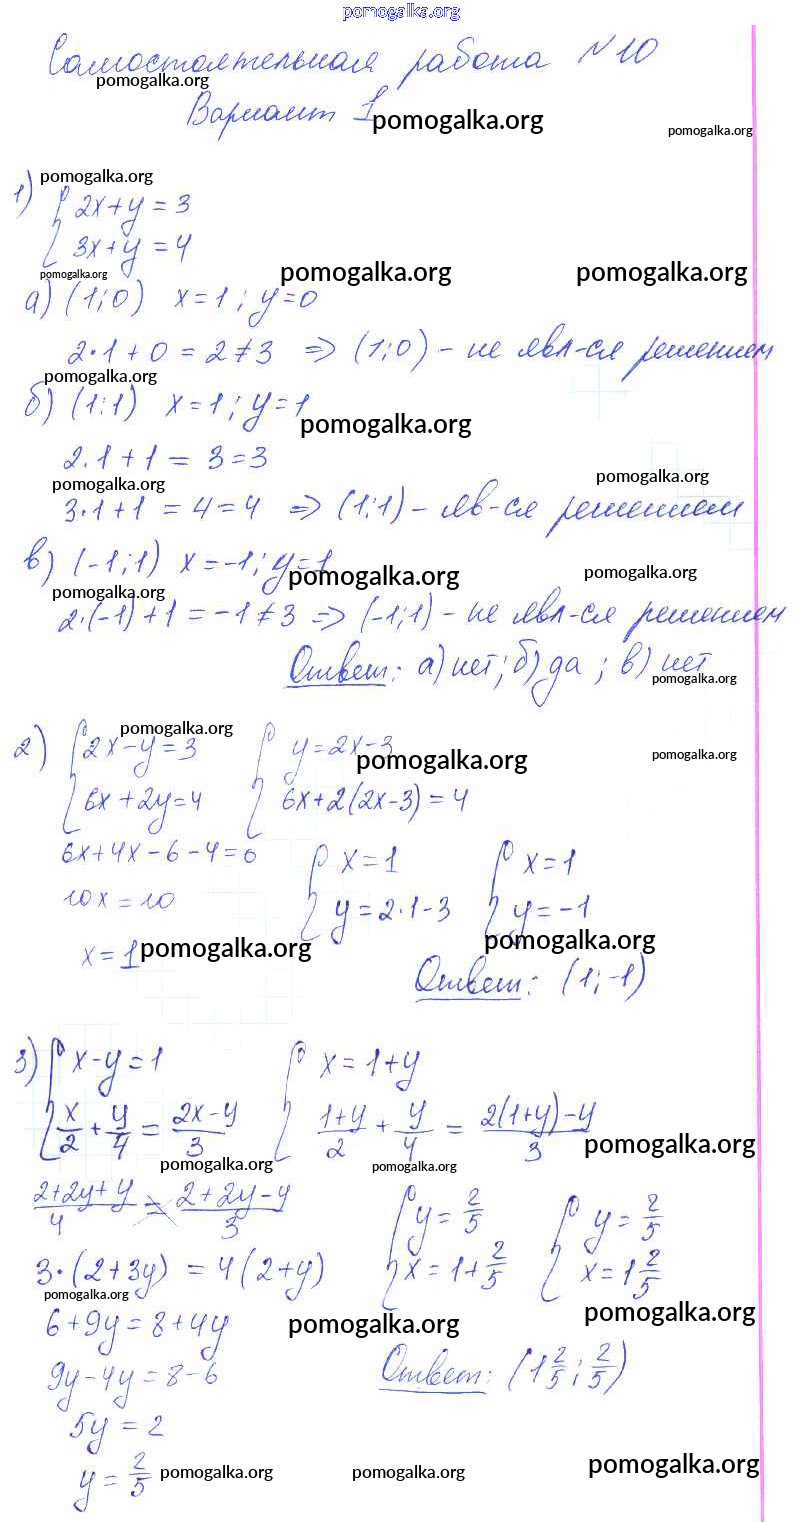 pomogalka.org
Самостоятельная работа №10
pomogalka.org
Вариант 1 pomogalka.org
pomogalka.org
pomogalka.org
1) { 2x+y=3
3x+y=4
pomogalka.org pomogalka.org pomogalka.org
а) (1;0) x=1; y=0
2·1+0=2≠3 => (1;0) - не явл-ся решением
pomogalka.org pomogalka.org
б) (1;1) x=1; y=1
pomogalka.org
2·1+1=3=3
pomogalka.org pomogalka.org
3·1+1=4=4 => (1;1) - яв-ся решением
в) (-1;1) x=-1; y=1
pomogalka.org pomogalka.org pomogalka.org
2·(-1)+1=-1≠3 => (-1;1) - не явл-ся решением
Ответ: а) нет; б) да; в) нет
pomogalka.org
pomogalka.org
2) { 2x-y=3 { y=2x-3
pomogalka.org pomogalka.org
6x+2y=4 6x+2(2x-3)=4
6x+4x-6-4=0 { x=1 { x=1
10x=10 y=2·1-3 y=-1
x=1 pomogalka.org pomogalka.org
Ответ: (1;-1)
3) { x-y=1 { x=1+y
x/2+y/4=(2x-y)/3 (1+y)/2+y/4=(2(1+y)-y)/3
pomogalka.org pomogalka.org pomogalka.org
(2+2y+y)/4=(2+2y-y)/3 { y=2/5 { y=2/5
3·(2+3y)=4(2+y) x=1+2/5 x=1 2/5
pomogalka.org pomogalka.org
6+9y=8+4y pomogalka.org
9y-4y=8-6 Ответ: (1 2/5; 2/5)
5y=2
y=2/5 pomogalka.org pomogalka.org pomogalka.org